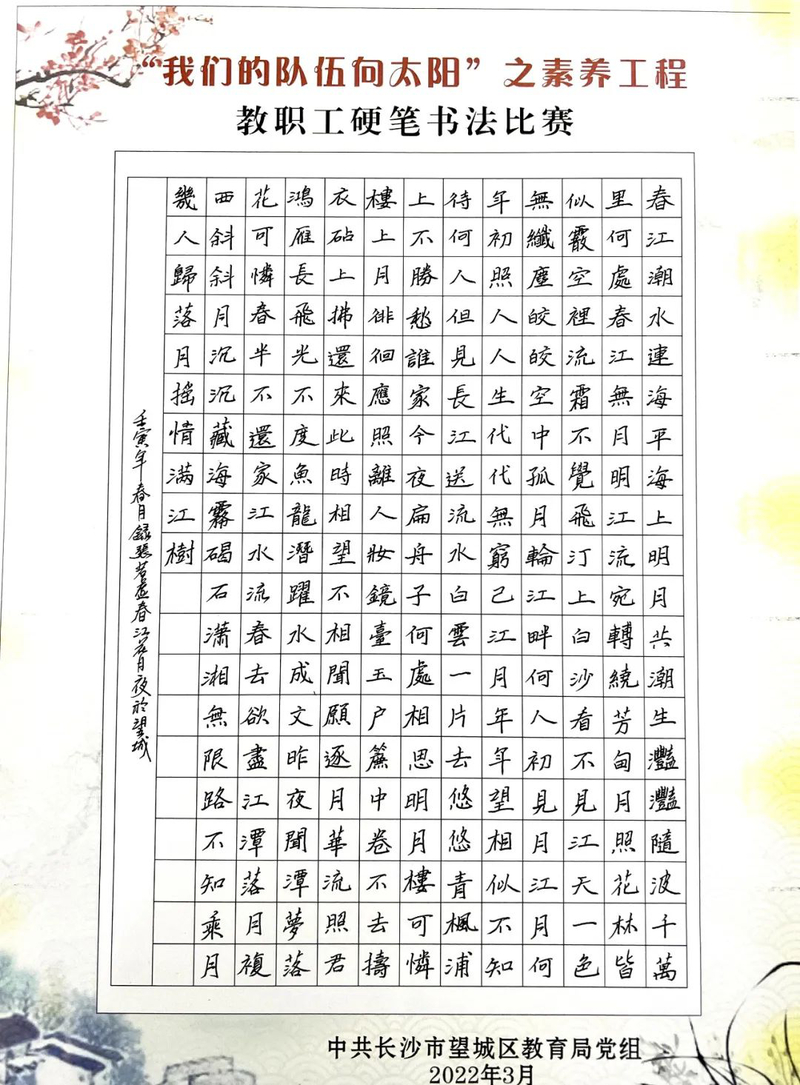 “我们的队伍向太阳”之素养工程
教职工硬笔书法比赛
春江潮水連海平海上明月共潮生灩灩隨波千萬
里何處春江無月明江流宛轉繞芳甸月照花林皆
似霰空裡流霜不覺飛汀上白沙看不見江天一色
無纖塵皎皎空中孤月輪江畔何人初見月江月何
年初照人人生代代無窮已江月年年望相似不知
待何人但見長江送流水白雲一片去悠悠青楓浦
上不勝愁誰家今夜扁舟子何處相思明月樓可憐
樓上月徘徊應照離人妝鏡臺玉户簾中卷不去擣
衣砧上拂還來此時相望不相聞願逐月華流照君
鴻雁長飛光不度魚龍潛躍水成文昨夜聞潭夢落
花可憐春半不還家江水流春去欲盡江潭落月複
西斜斜月沉沉藏海霧碣石瀟湘無限路不知乘月
幾人歸落月搖情滿江樹
壬寅年春月録張若虛春江花月夜於望城
中共长沙市望城区教育局党组
2022年3月